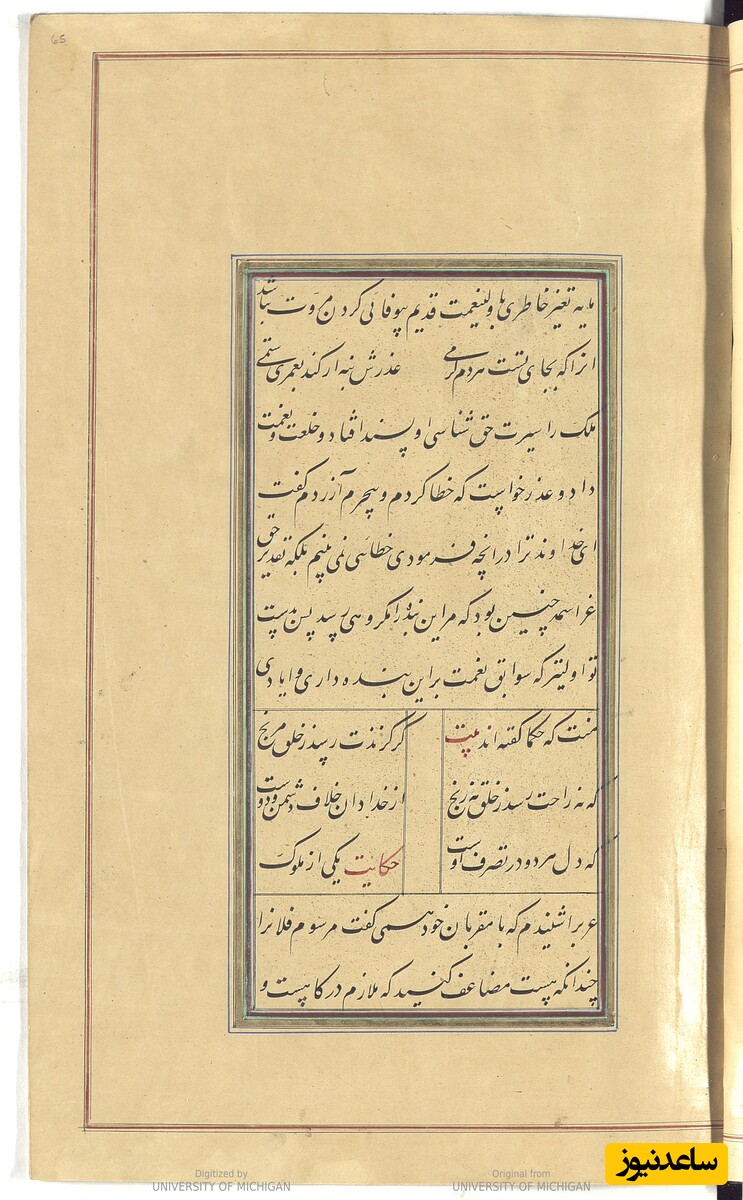 65
مایه تغیر خاطری با ولینعمت قدیم بیوفائی کردن مروت نباشد
انرا که بجای تست هردم کرمی عذرش بنه ار کند بعمری ستمی
ملک را سیرت حق شناسی او پسند افتاد و خلعت و نعمت
داد و عذر خواست که خطا کردم و بیجرم آزردم گفت
ای خداوند ترا درانچه فرمودی خطائی نمی بینم بلکه تقدیر حق
عز اسمه چنین بود که مر این بنده را مکروهی رسد پس بدست
تو اولیتر که سوابق نعمت براین بنده داری و ایادی
منت که حکما گفته اند بیت گر گزندت رسد ز خلق مرنج
که نه راحت رسد ز خلق نه رنج از خدا دان خلاف دشمن و دوست
که دل هر دو در تصرف اوست حکایت یکی از ملوک
عربرا شنیدم که با مقربان خود همی گفت مرسوم فلانرا
چندانکه هست مضاعف کنید که ملازم درگاهست و
ساعدنیوز
Digitized by
UNIVERSITY OF MICHIGAN
Original from
UNIVERSITY OF MICHIGAN